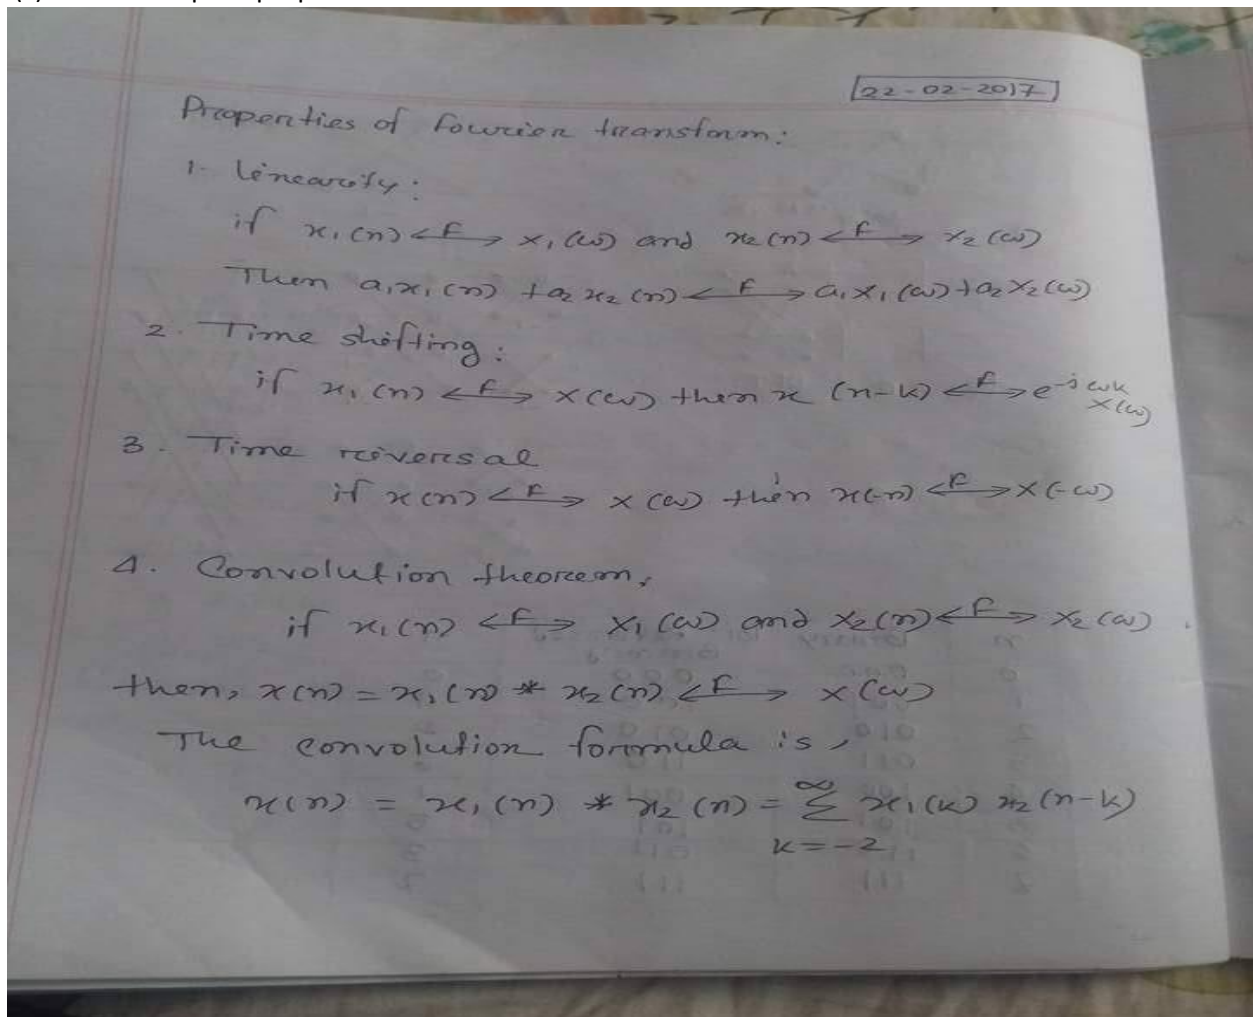 22-02-2017
Properties of Fourier transform:
1. Linearity:
if x₁(n) <-F-> X₁(ω) and x₂(n) <-F-> X₂(ω)
Then a₁x₁(n) + a₂x₂(n) <-F-> a₁X₁(ω) + a₂X₂(ω)
2. Time shifting:
if x₁(n) <-F-> X(ω) then x (n-k) <-F-> e^-jωk X(ω)
3. Time reversal
if x(n) <-F-> X(ω) then x(-n) <-F-> X(-ω)
4. Convolution theorem,
if x₁(n) <-F-> X₁(ω) and X₂(n) <-F-> X₂(ω).
then, x(n) = x₁(n) * x₂(n) <-F-> X(ω)
The convolution formula is,
x(n) = x₁(n) * x₂(n) = ∞ Σ x₁(k) x₂(n-k)
k=-2